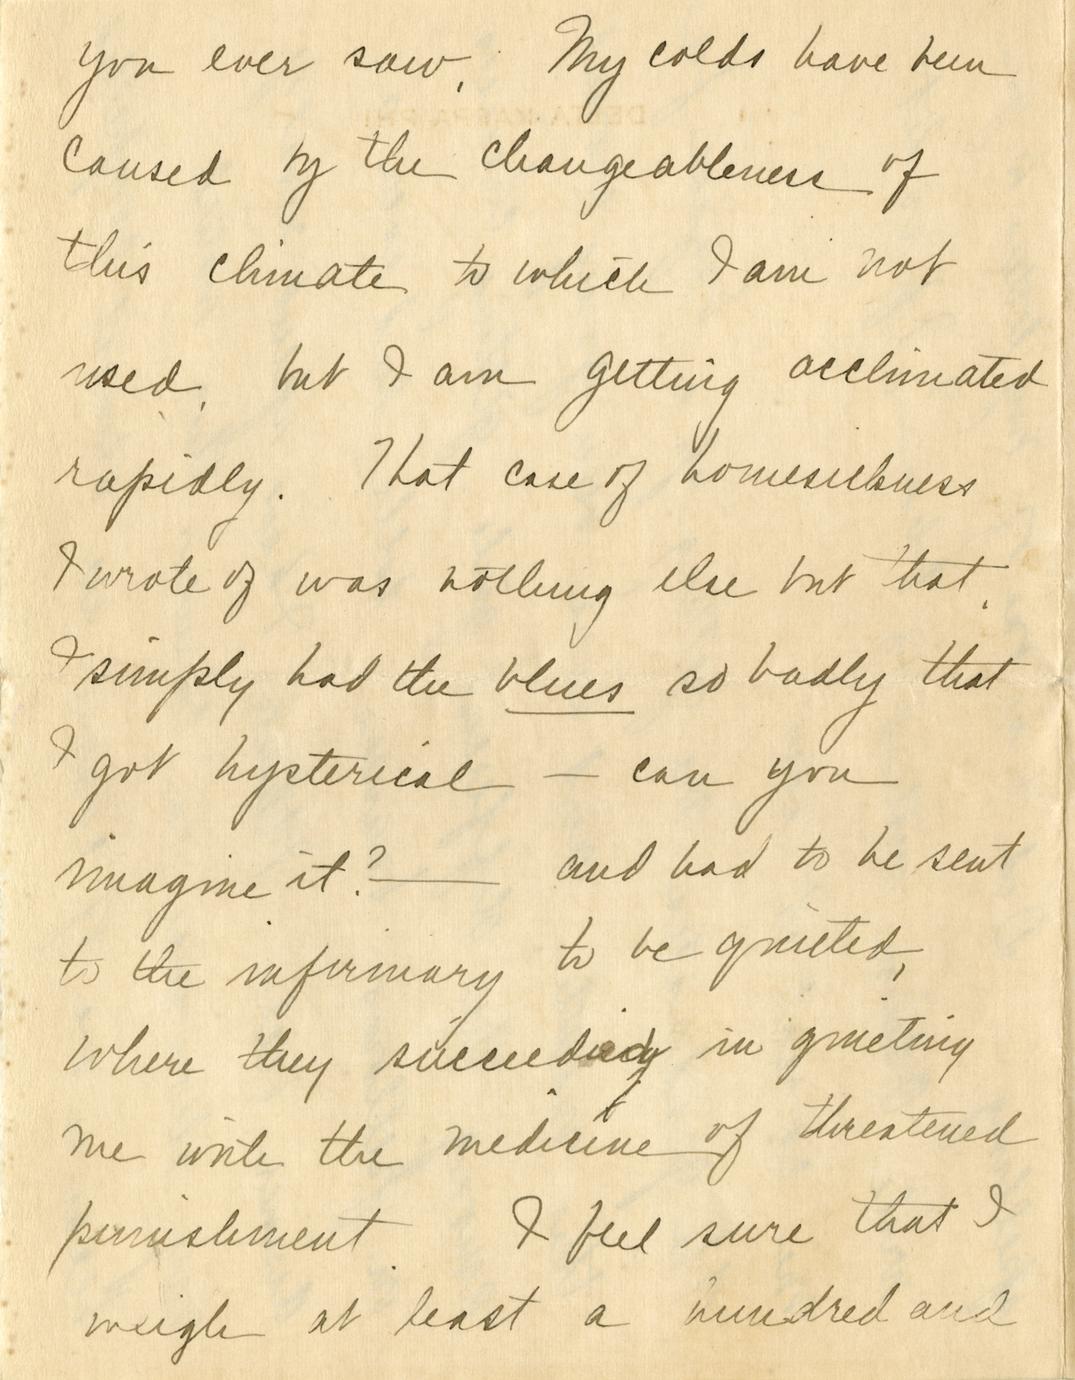 you ever saw. My colds have been
caused by the changeableness of
this climate to which I am not
used, but I am getting acclimated
rapidly. That case of homesickness
I wrote of was nothing else but that.
I simply had the blues so badly that
I got hysterical — can you
imagine it? — and had to be sent
to the infirmary to be quieted,
where they succeeded in quieting
me with the medicine of threatened
punishment. I feel sure that I
weigh at least a hundred and